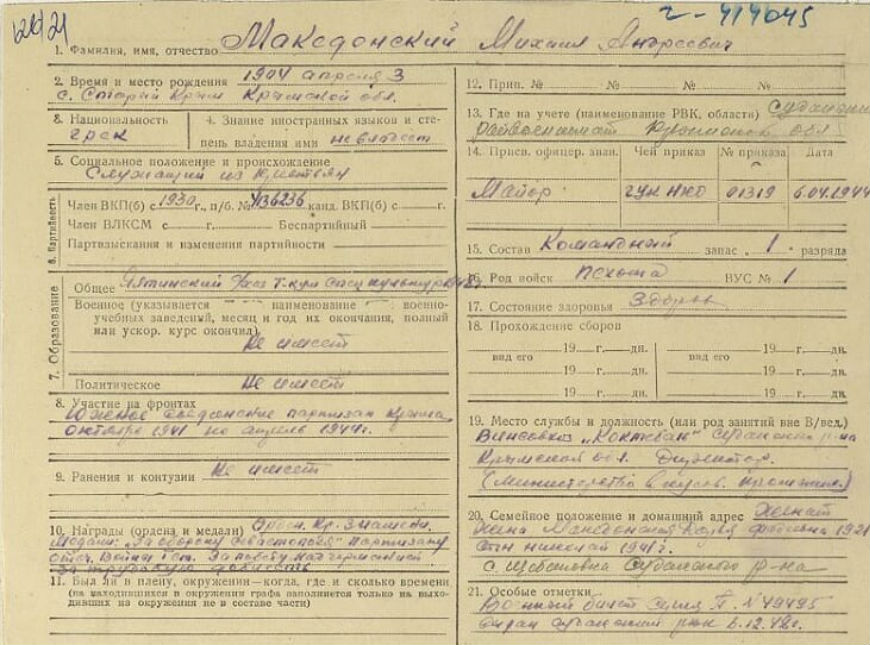 2-414045
1. Фамилия, имя, отчество Македонский Михаил Андреевич
2. Время и место рождения 1904 апреля 3
с. Старый Крым Крымской обл.
3. Национальность грек
4. Знание иностранных языков и степень владения ими не владеет
5. Социальное положение и происхождение
Служащий из крестьян
6. Партийность
Член ВКП(б) с 1930 г., п/б. № канд. ВКП(б) с г.
Член ВЛКСМ с г. Беспартийный
Партвзыскания и изменения партийности
7. Образование
Общее Ялтинский
Военное (указывается наименование военно-
учебных заведений, месяц и год их окончания, полный
или ускор. курс окончил)
Не имеет
Политическое Не имеет
8. Участие на фронтах
Южное соединение партизан Крыма
октября 1941 по апрель 1944 г.
9. Ранения и контузии Не имеет
10. Награды (ордена и медали) Орден Кр. Знамени,
Медали: "За оборону Севастополя" Партизану
Отеч. Войны За победу над Германией
За трудовую доблесть
11. Был ли в плену, окружении—когда, где и сколько времени
(на находившихся в окружении графа заполняется только на выхо-
дивших из окружения не в составе части)
12. Прип. № № № №
13. Где на учете (наименование РВК, области) Судакский
райвоенкомат Крымской обл.
14. Присв. офицер. зван. Чей приказ № приказа Дата
Майор ГУК НКО 01319 6.04.1944
15. Состав Командный запас 1 разряда
16. Род войск пехота ВУС № 1
17. Состояние здоровья Здоров
18. Прохождение сборов
19 г. дн. 19 г. дн.
вид его вид его
19 г. дн. 19 г. дн.
19 г. дн. 19 г. дн.
19. Место службы и должность (или род занятий вне В/вед.)
Винсовхоз "Коктебель" Судакского р-на
Крымской обл. Директор.
(Министерство вкусов. промышл.)
20. Семейное положение и домашний адрес Женат
Жена Македонская 1921
Сын Николай 1941 г.
с. Щебетовка Судакского р-на
21. Особые отметки
Военный билет серия № 49495
выдан Судакский рвк 6.12.48 г.